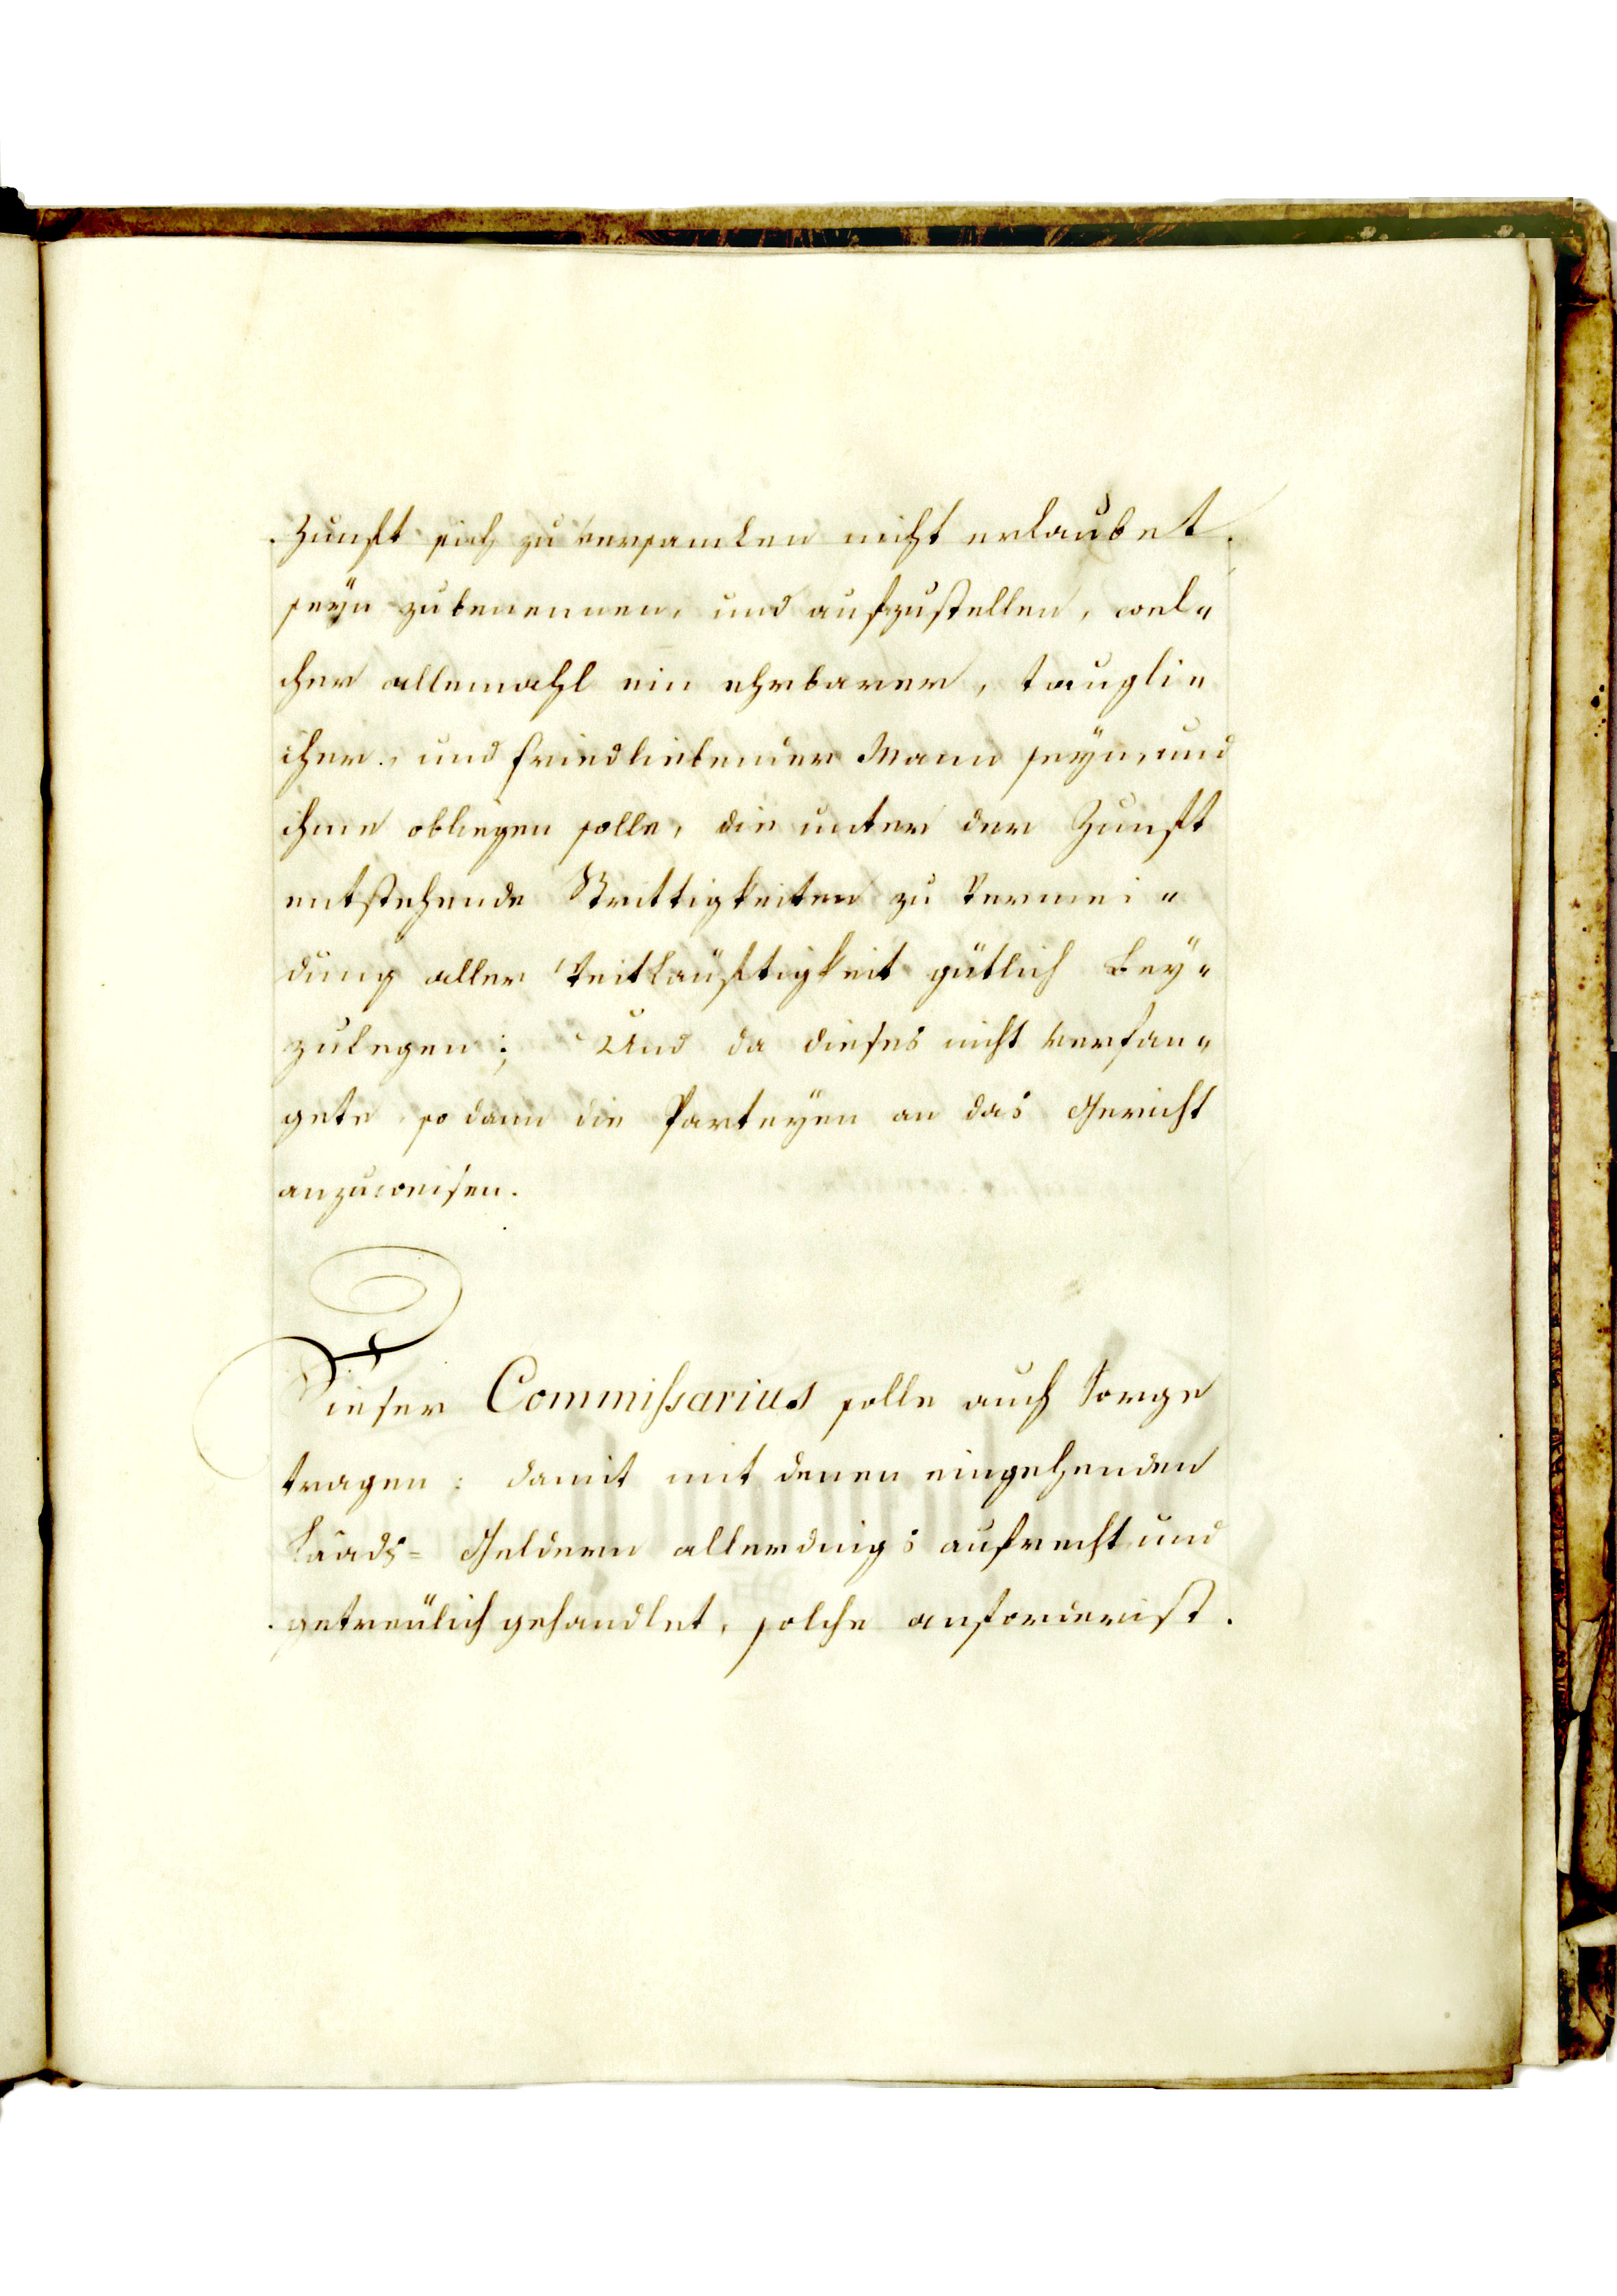 Zunft sich zu versamlen nicht erlaubet
seÿn zubenennen, und aufzustellen, wel„
cher allemahl ein ehrbarer, taugli„
cher, und friedliebender Mann seÿn, und
ihme obliegen solle, die unter der Zunft
entstehende Strittigkeiten zu Vermei„
dung aller Weitläuftigkeit gütlich beÿ„
zulegen; Und da dieses nicht verfan„
gete, so dann die Parteÿen an das Gericht
anzuweisen.
Dieser Commissarius solle auch Sorge
tragen: damit mit denen eingehenden
Laads= Geldern allerdings aufrecht und
getreülich gehandlet, solche anforderist.